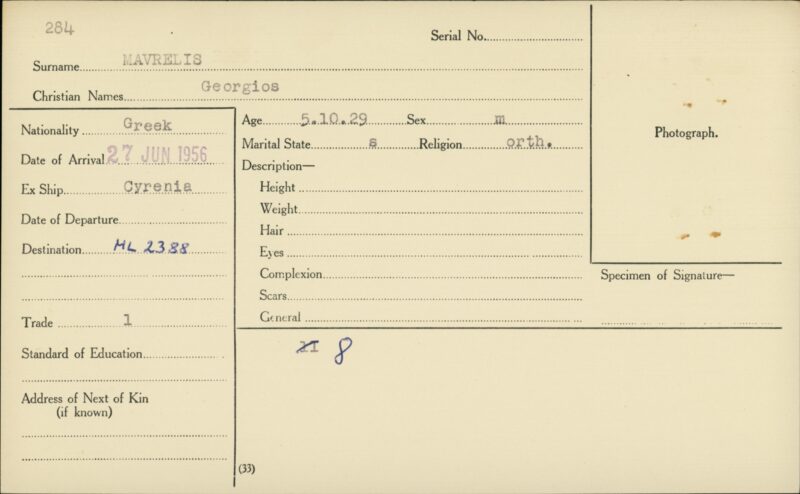 284
Serial No.
Surname MAVRELIS
Christian Names Georgios
Nationality Greek
Date of Arrival 27 JUN 1956
Ex Ship Cyrenia
Date of Departure
Destination HL 2388
Trade 1
Standard of Education
Address of Next of Kin
(if known)
Age 5.10.29 Sex m
Marital State s Religion orth.
Description—
Height
Weight
Hair
Eyes
Complexion
Scars
General
8
(33)
Photograph.
Specimen of Signature—